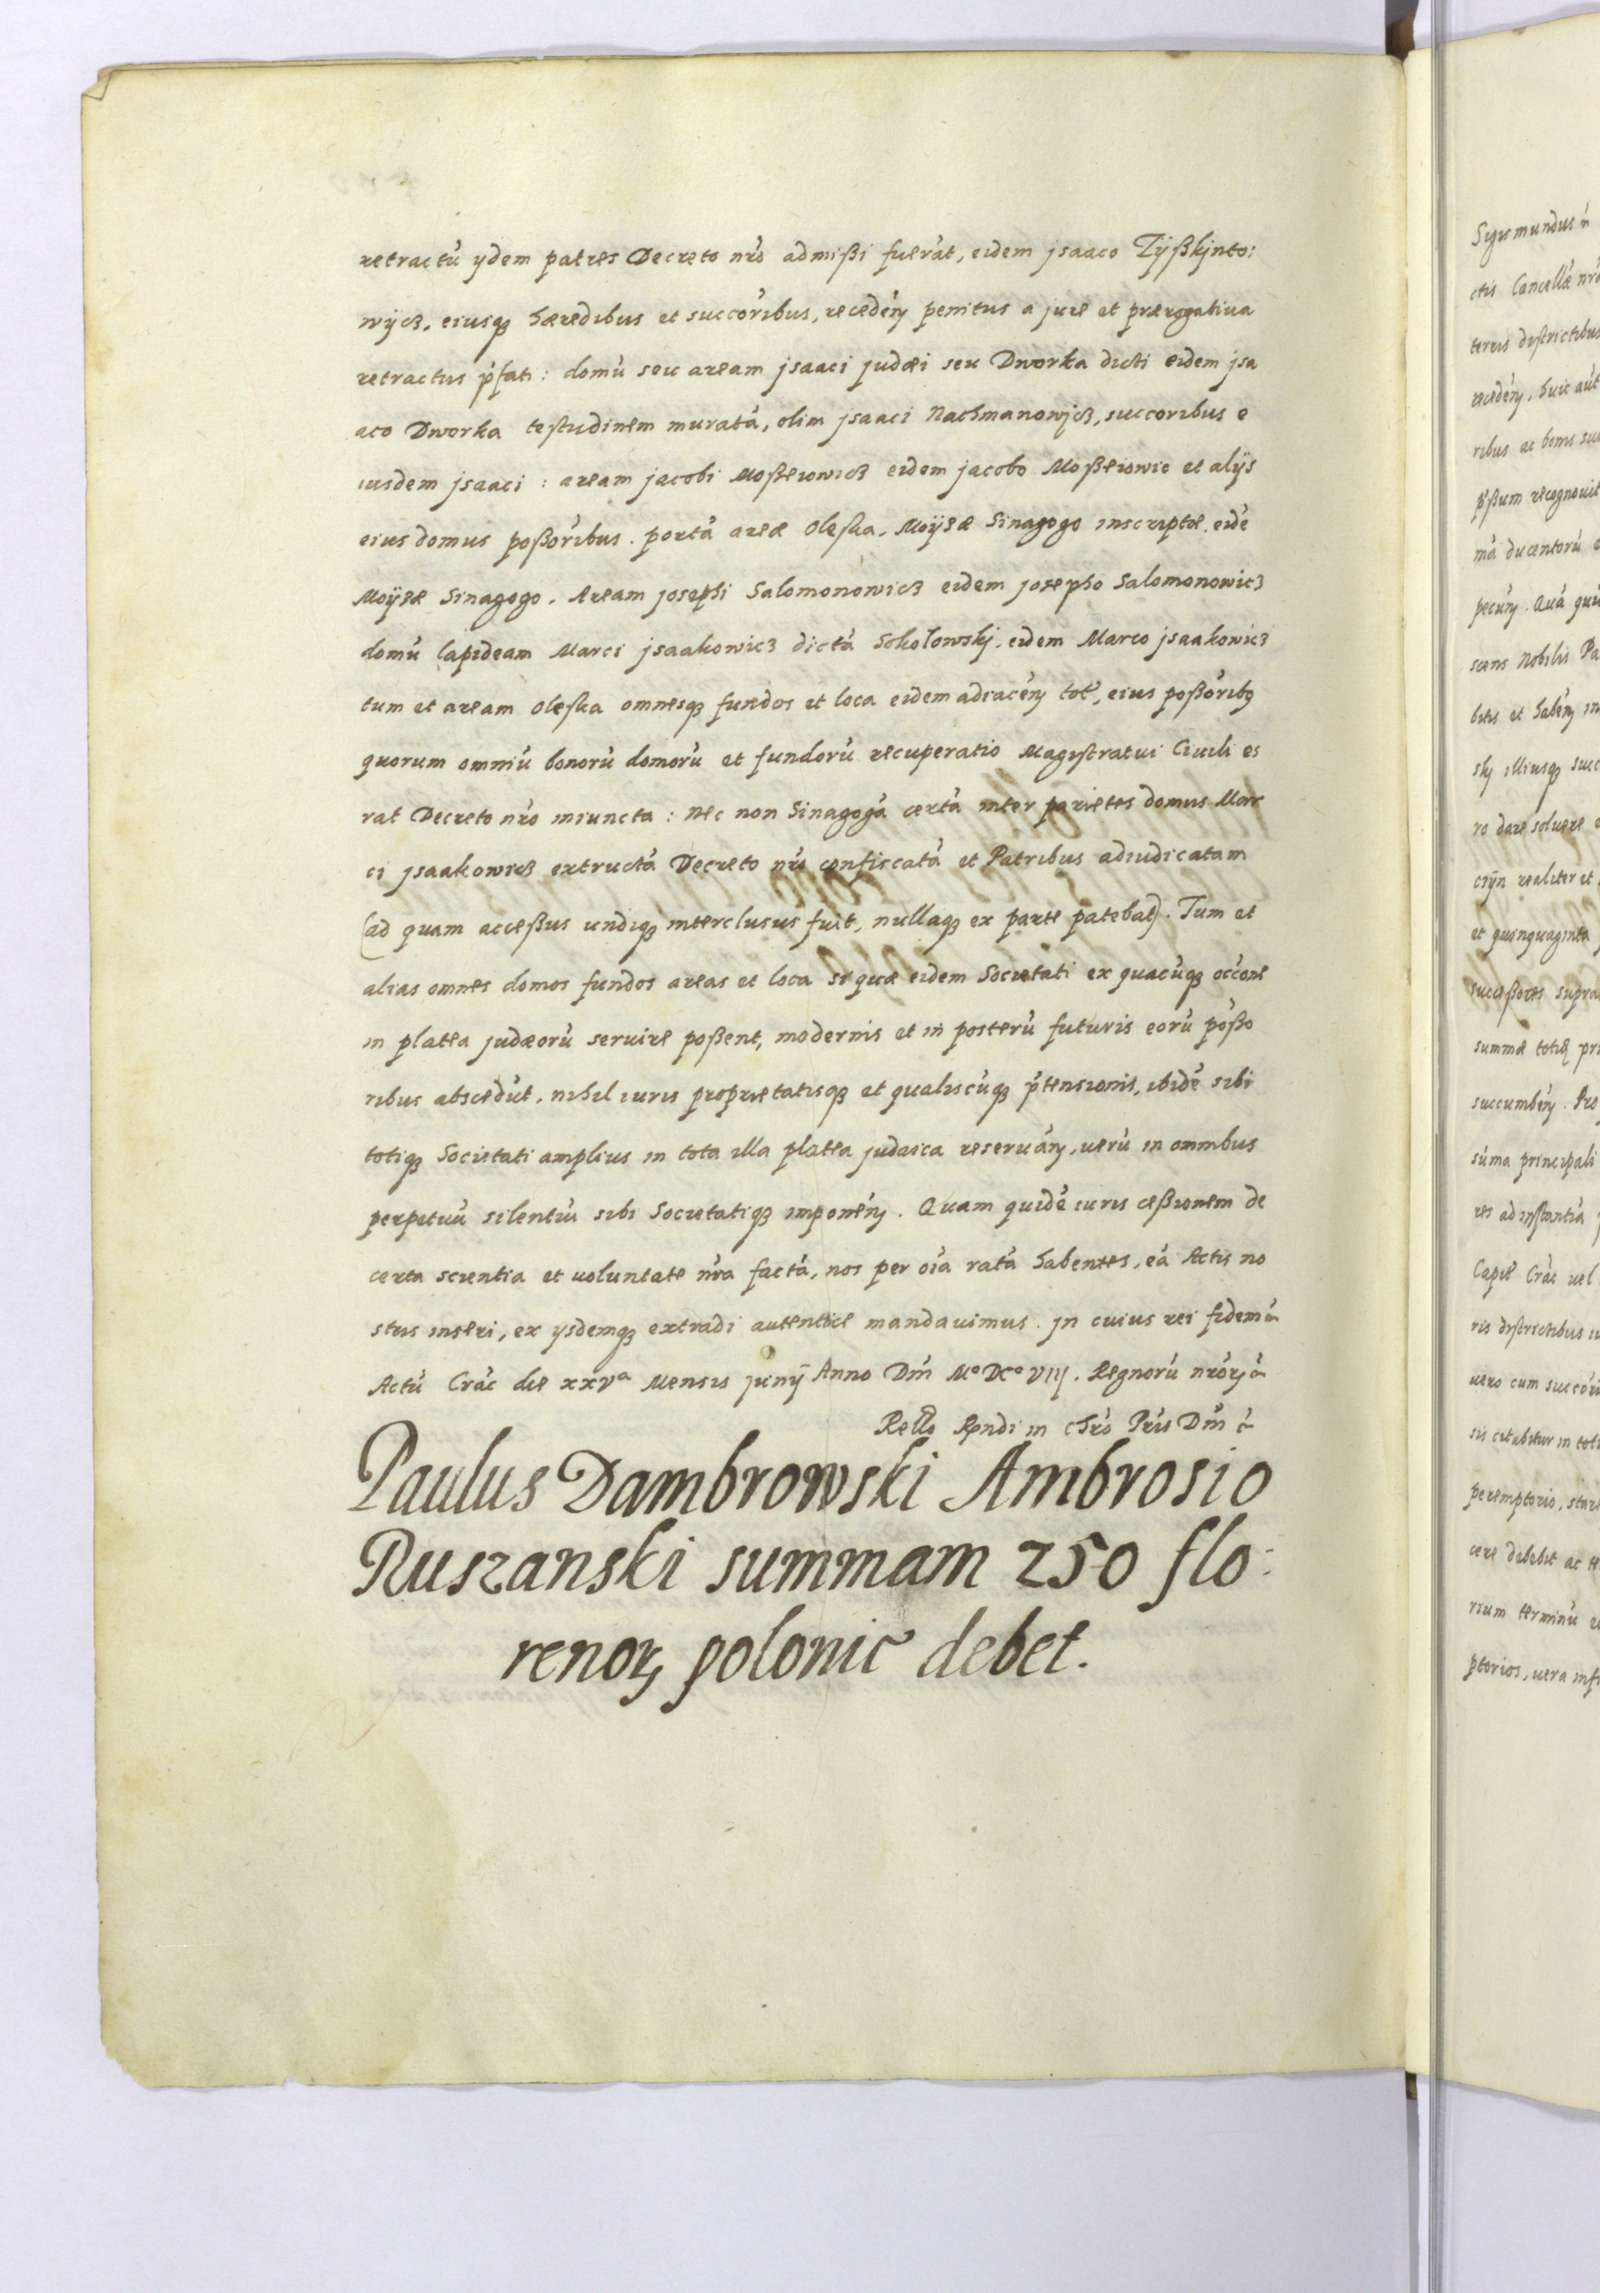 retractū ydem patres Decreto nrō admißi fuerāt, eidem jsaaco Tÿßkjnto:
wÿcz, eiusq₃ hæredibus et succōribus, recedēn penitus a jure et prærogatiua
retractus p̄fati: domū seu aream jsaaci judæi seu Dworka dicti eidem jsa
aco Dworka testudinem muratā, olim jsaaci Nachmanowjcz, succoribus e
iusdem jsaaci: aream jacobi Moßeiowicz eidem jacobo Moßeiowic et alijs
eius domus poßōribus. portā areæ oleska, Moÿsæ Sinagogo inscriptæ, eidē
Moÿsæ Sinagogo. Aream josephi Salomonowicz eidem josepho Salomonowicz
domū lapideam Marci jsaakowicz dictā Sokolowskj, eidem Marco jsaakowicz
tum et aream oleska omnesq₃ fundos et loca eidem adiacēn tot, eius poßōribꝫ
quorum omniū bonorū domorū et fundorū recuperatio Magistratui Ciuili es
rat Decreto nrō iniuncta: Nec non Sinagogā certā inter parietes domus Mar
ci jsaakowicz extructā Decreto nrō confiscatā et Patribus adiudicatam
(ad quam acceßus undiq₃ interclusus fuit, nullaq₃ ex parte patebat). Tum et
alias omnes domos fundos areas et loca si quæ eidem Societati ex quacūq₃ occōne
in platea judæorū seruire poßent, modernis et in posterū futuris eorū pōßo
ribus abscedūt, nihil iuris proprietatisq₃ et qualiscūq₃ p̄tensionis, ibidē sibi
totiq₃ Societati amplius in tota illa platea judaica reseruān, uerū in omnibus
perpetuū silentiū sibi Societatiq₃ imponēn. Quam quidē iuris ceßionem de
certa scientia et uoluntate nrā factā, nos per oīa ratā habentes, eā Actis no
stris inseri, ex ysdemq₃ extradi autentice mandauimus. jn cuius rei fidem
Actū Crāc die xxvᵃ Mensis junÿ Anno Dnī Mº DCº VIIJ. Regnorū nrōrꝫ
Rello Rndi in Chrō Prīs Dnī
Paulus Dambrowski Ambrosio
Ruszanski summam 250 flo:
renorꝫ polonic debet.
Sigismundus
ctis Cancellæ nrō
terris districtibus
recedēn, huic aūt
ribus ac bonis suc
p̄ßum recognouit
mā ducentorū
pecūn. Quā qui
scens Nobilis Pa
bitis et habēn in
skj illiusq₃ succ
ro dare soluere
realiter et
et quinquaginta
succeßores supra
summæ totiꝫ pri
succumbēn. Pro
sūma principali
res ad instantiā
Capit Crāc uel
ris districtibus
uero cum succōri
sis citabitur in toti
peremptorio, stare
cere debebit ac
rium terminū
ptorios, uera inf